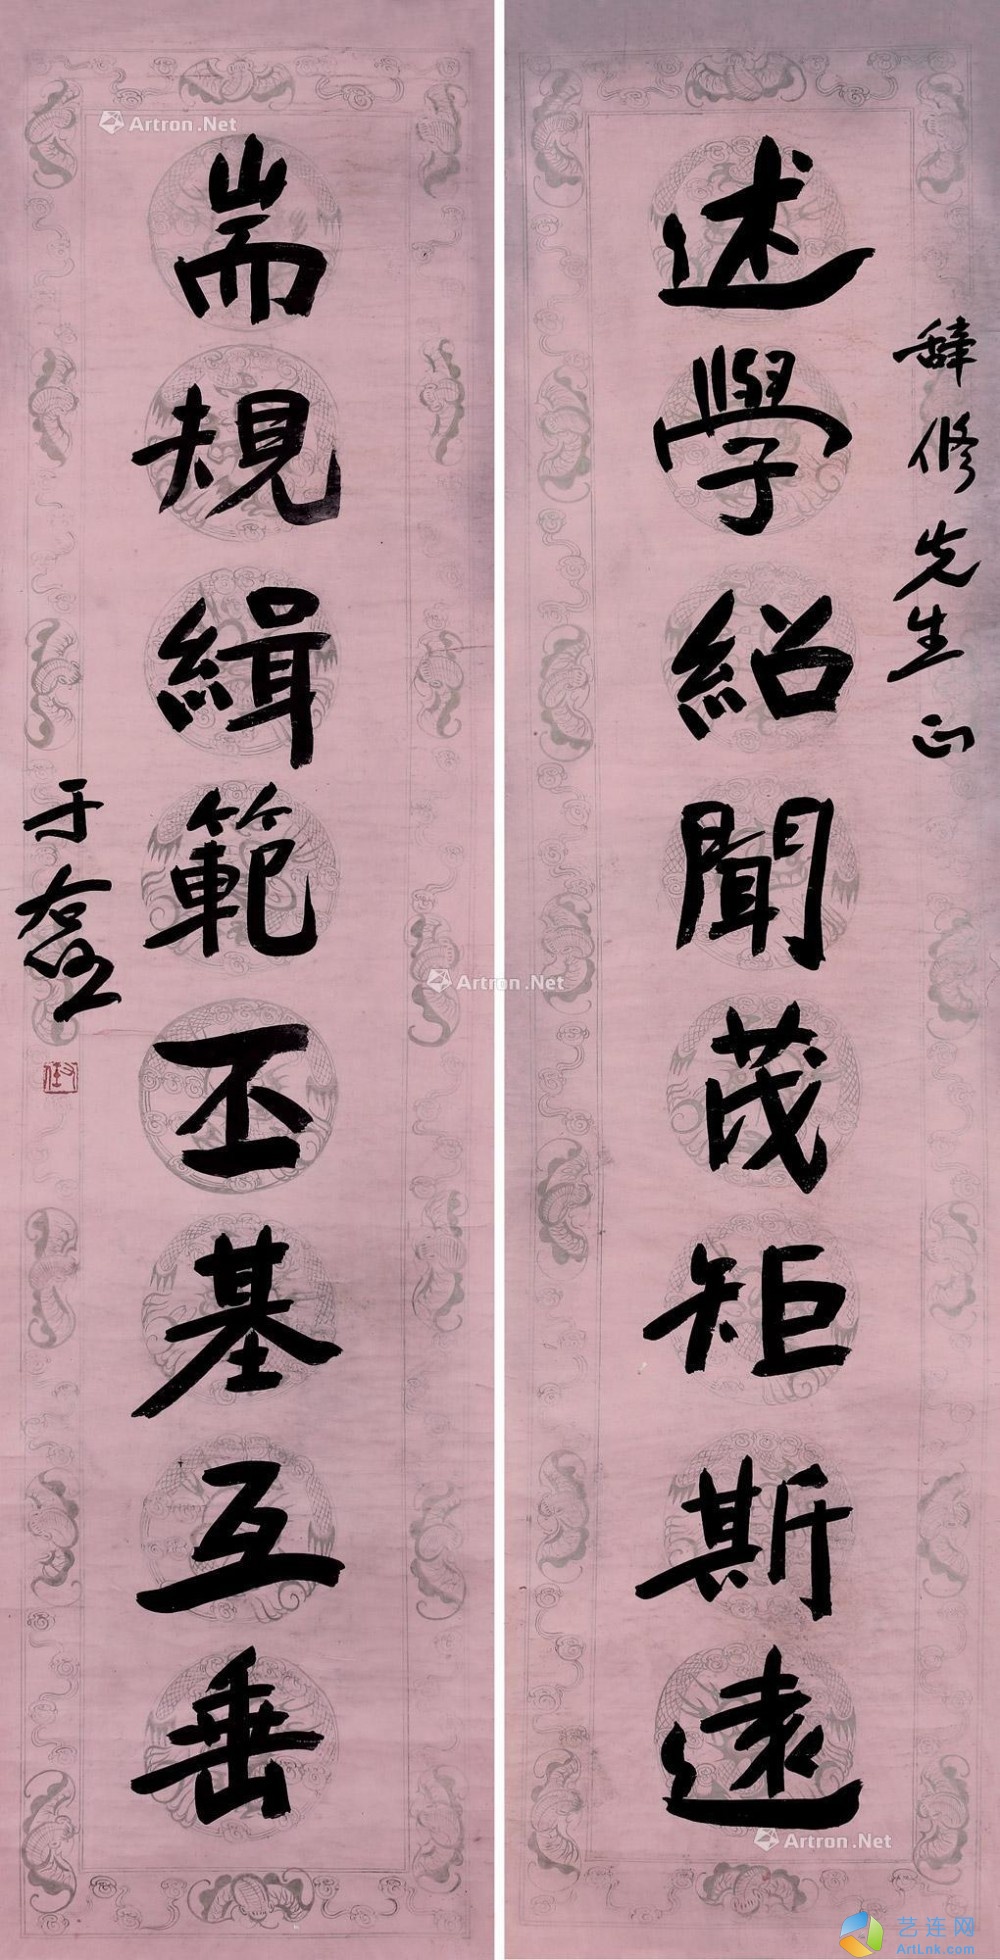 辞修先生正
述學紹聞茂矩斯遠
耑規緝範丕基互垂
于右任
右任
Artron.Net
Artron.Net
Artron.Net
艺连网
ArtLnk.com